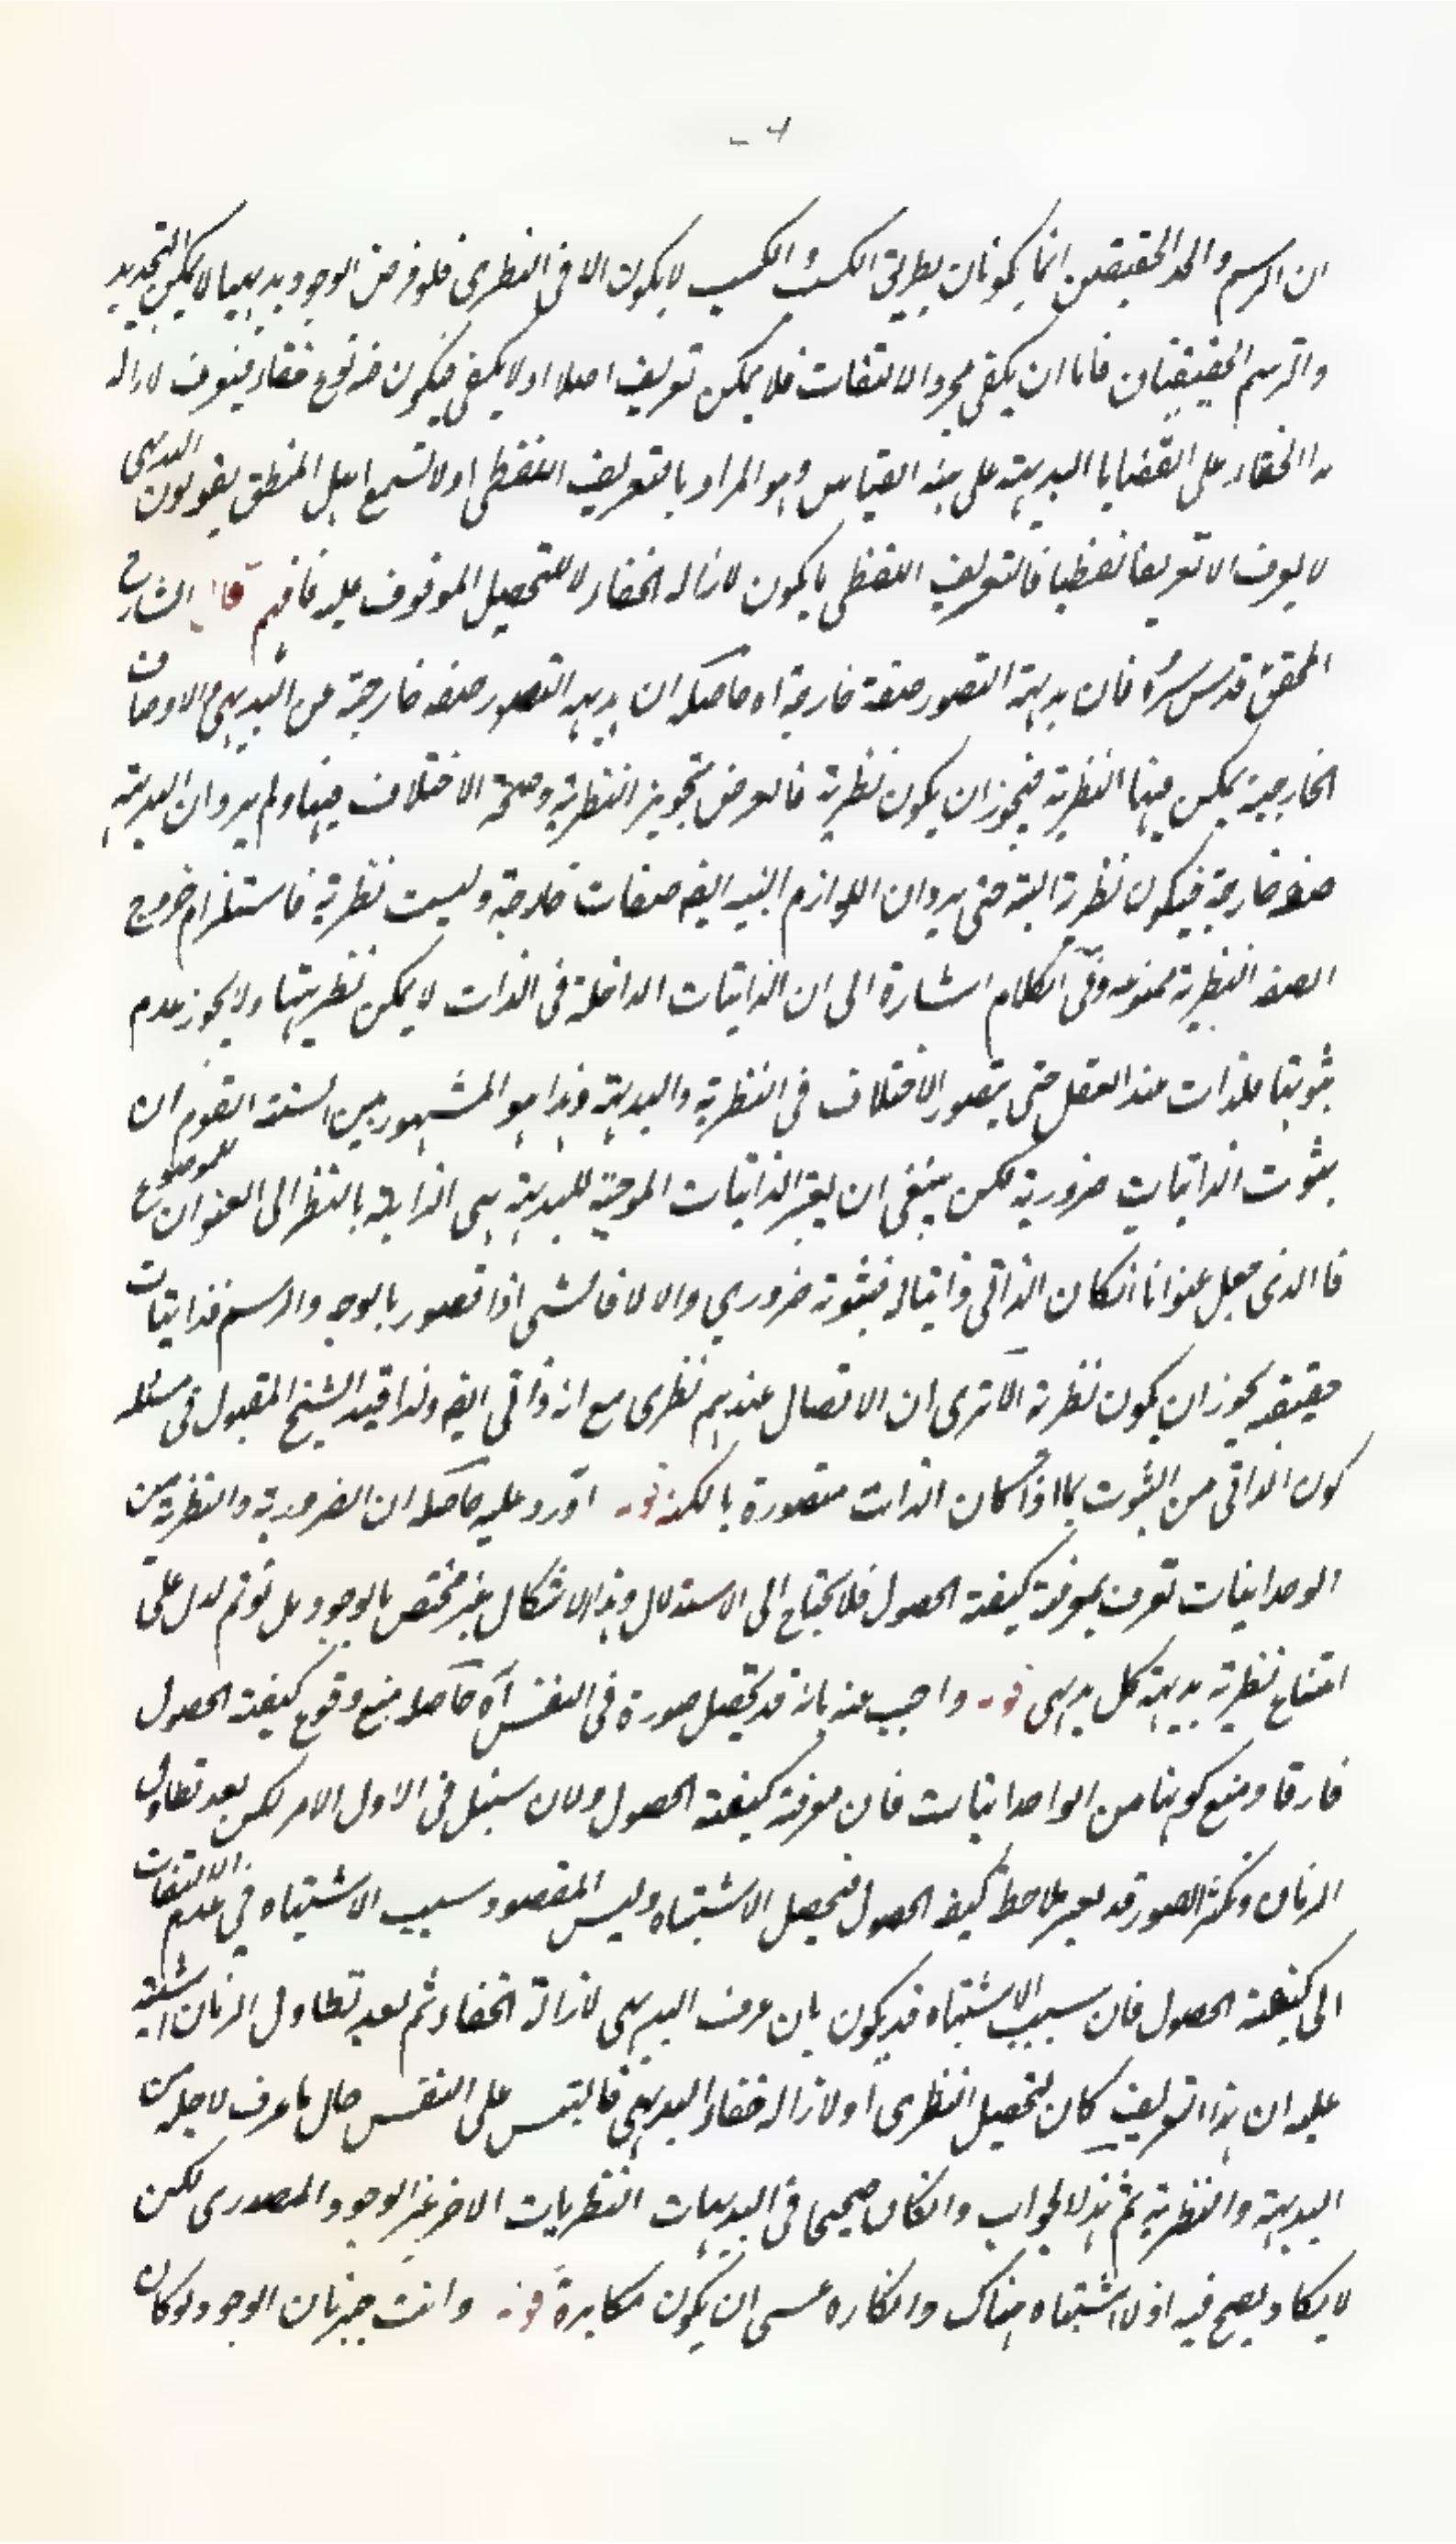 ان الرسم والحد الحقيقيين انما يكونان بطريق الكسب والكسب لا يكون الا في النظري فلو فرض الوجود بديهيا لا يمكن التحديد
والترسيم الحقيقيان فاما ان يكفي مجرد الالتفات فلا يمكن تعريف اصلا او لا يكفي فيكون فيه نوع خفاء فيعرف لازالة
هذا الخفاء على القضايا البديهية على هذه القياس وهو المراد بالتعريف اللفظي اولا تسمع اهل المنطق يقولون البديهي
لا يعرف الا تعريفا لفظيا فالتعريف اللفظي ما يكون لازالة الخفاء لا لتحصيل الموقوف عليه فافهم قال الشارح
المحقق قدس سره فان بداهة التصور صفة خارجة اه حاصله ان بديهة التصور صفة خارجة عن البديهي والاوصاف
الخارجية يمكن فيها النظرية فيجوز ان يكون نظرية فالغرض تجويز النظرية وصحة الاختلاف فيها ولم يرد ان البديهة
صفة خارجة فيكون نظرية البتة حتى يرد ان اللوازم البينة ايضا صفات خارجة وليست نظرية فاستلزام خروج
الصفة النظرية ممنوعة وفي الكلام اشارة الى ان الذاتيات الداخلة في الذات لا يمكن نظريتها ولا يجوز عدم
ثبوتها للذات عند العقل حتى يتصور الاختلاف في النظرية والبديهة وهذا هو المشهور بين السنة القوم ان
ثبوت الذاتيات ضرورية لكن ينبغي ان يعتبر الذاتيات الموجبة للبديهة هي الذاتية بالنظر الى العنوان للموضوع
فالذي جعل عنوانا انكان الذاتي ذاتيا له فثبوته ضروري والا لا فالشي اذا تصور بالوجه والرسم فذاتيات
حقيقته يجوز ان يكون نظرية الا ترى ان الاتصال عندهم نظري مع انه ذاتي ايضا ولذا قيد الشيخ المقبول في مسئلة
كون الذاتي بين الثبوت بما اذا كان الذات متصورة بالكنه قوله اورد عليه حاصله ان الضرورية والنظرية من
الوجدانيات تعرف بمعرفة كيفية الحصول فلا يحتاج الى الاستدلال وهذا الاشكال غير مختص بالوجود بل لو تم لدل على
امتناع نظرية بديهة كل بديهي قوله واجيب عنه بانه قد يحصل صورة في النفس اه حاصله منع وقوع كيفية الحصول
فارقا ومنع كونها من الوجدانيات فان معرفة كيفية الحصول ولان سهل في الاول الامر لكن بعد تطاول
الزمان وتكثر الصور قد يعسر ملاحظة كيفية الحصول فيحصل الاشتباه وليس المقصود سبب الاشتباه في عدم الالتفات
الى كيفية الحصول فان سبب الاشتباه قد يكون بان عرف البديهي لازالة الخفاء ثم بعد تطاول الزمان اشتبه
عليه ان هذا التعريف كان لتحصيل النظري او لازالة خفاء البديهي فالتبس على النفس حال ما عرف لاجله من
البديهة والنظرية ثم هذا الجواب وانكان صحيحا في البديهيات النظريات الاخر غير الوجود المصدري لكن
لا يكاد يصح فيه اذ لا اشتباه هناك وانكاره عسى ان يكون مكابرة قوله وانت خبير بان الوجود لو كان